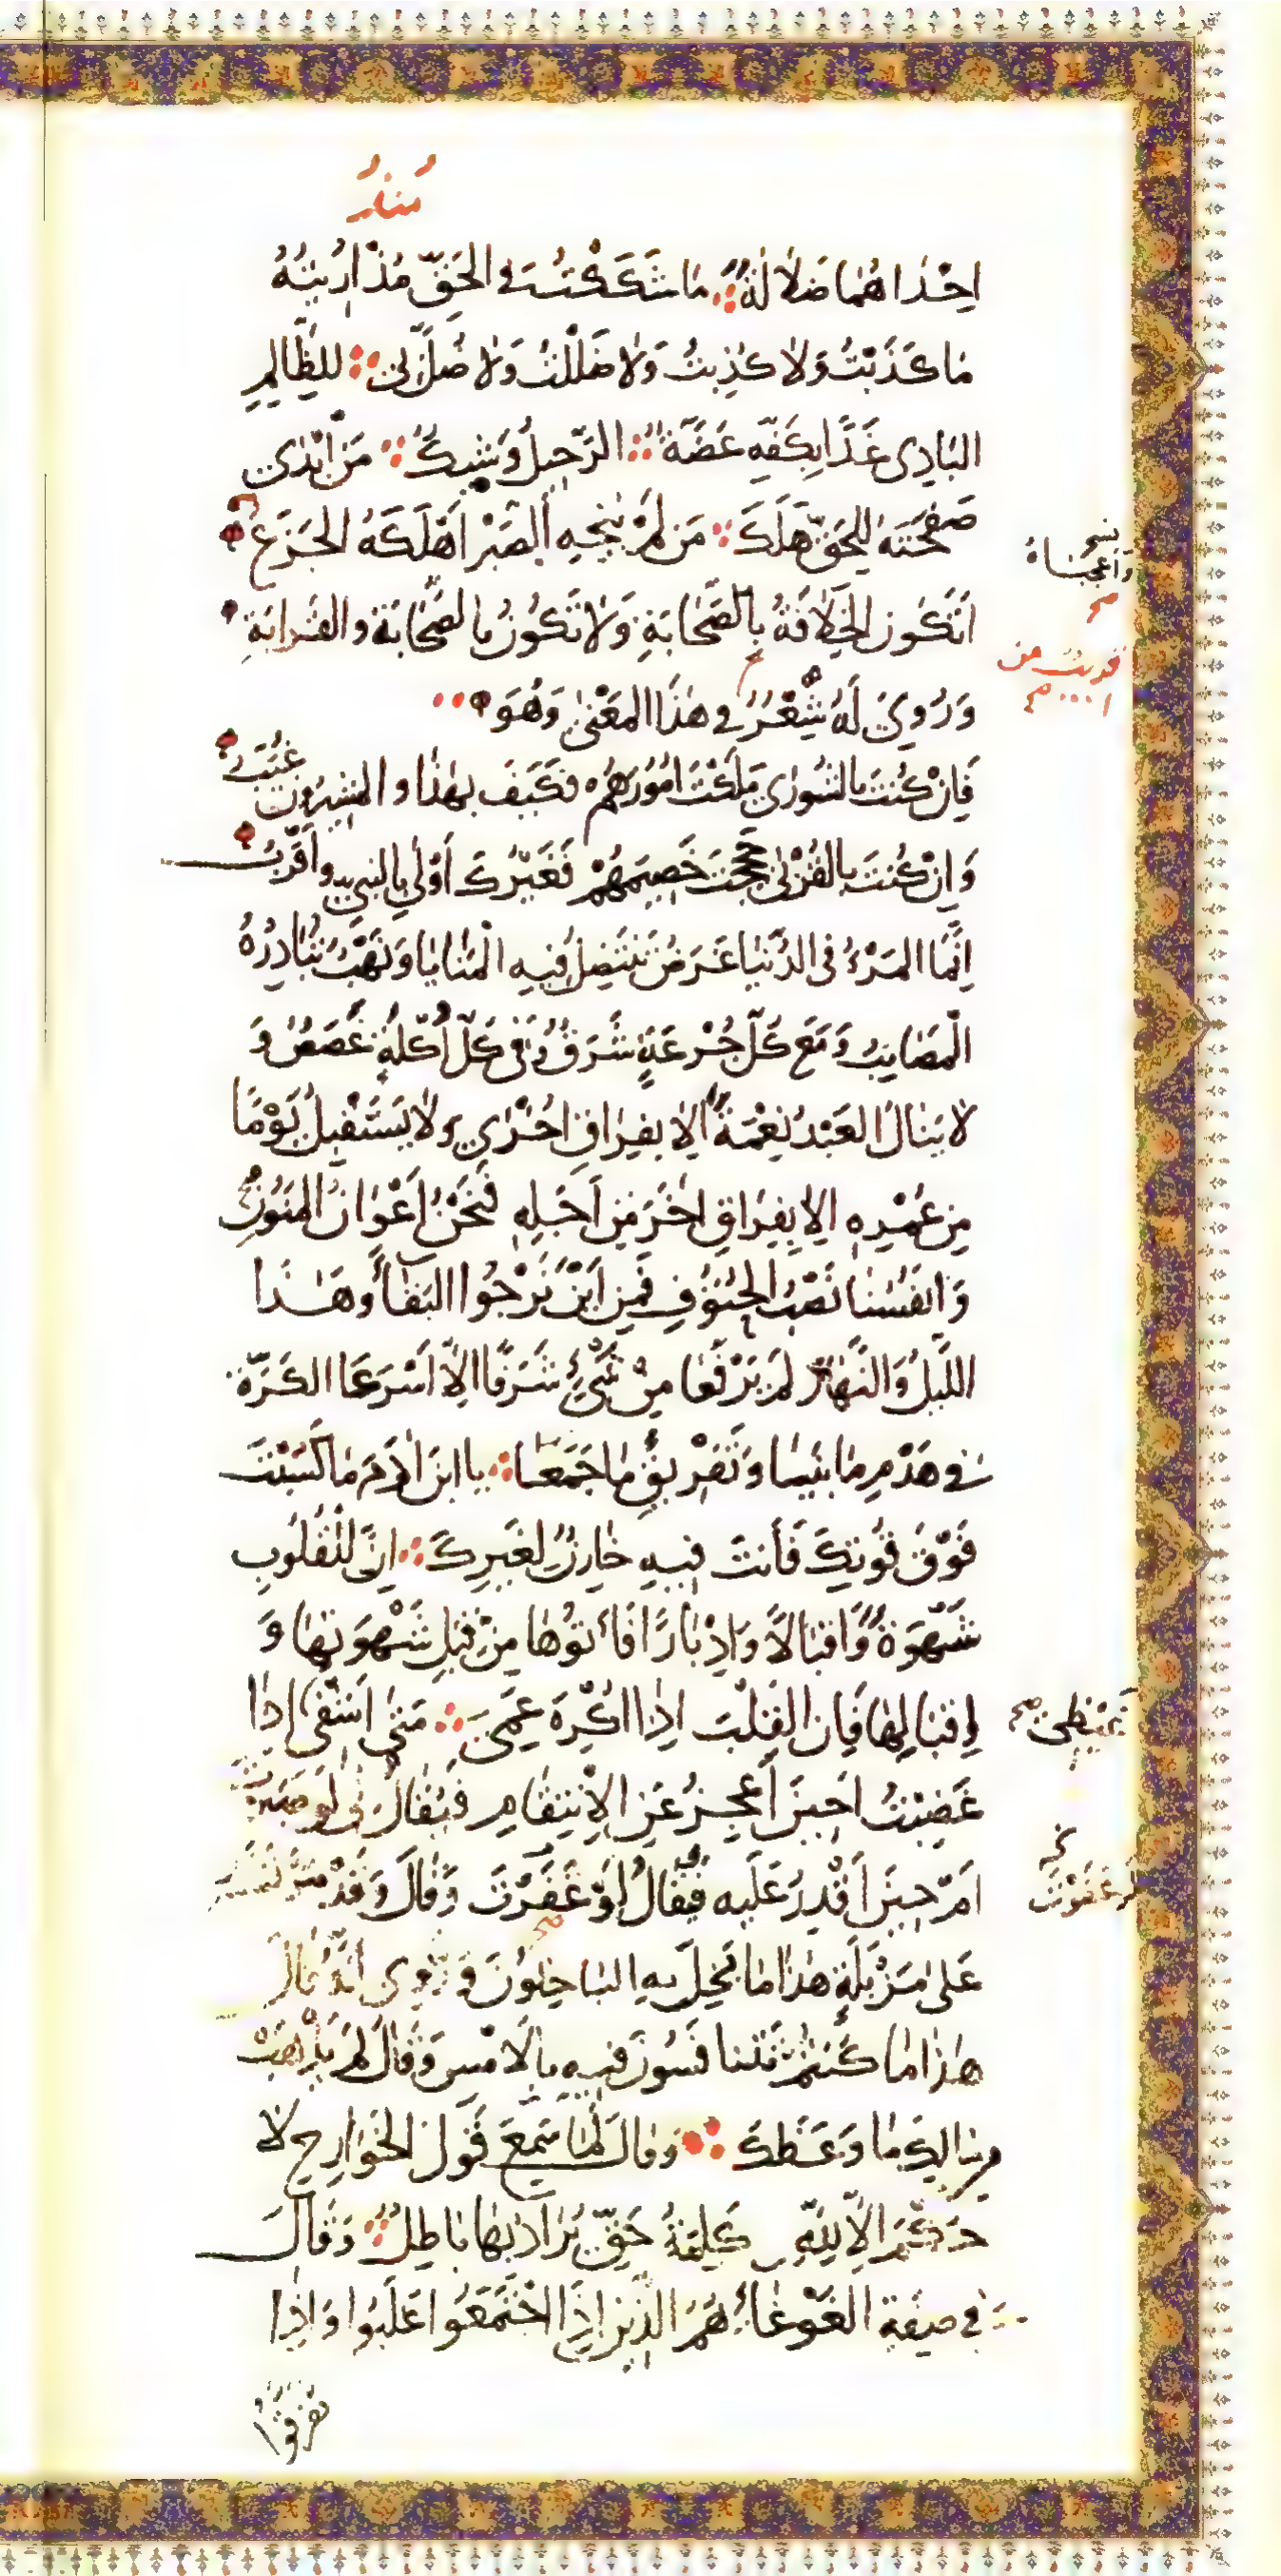 اِحْدٰاهُمٰا ضَلاٰلَةً مٰا شَكَكْتُ فِى الْحَقِّ مُذْ اُرِيتُهُ
مٰا كَذَبْتُ وَلاٰ كُذِبْتُ وَلاٰ ضَلَلْتُ وَلاٰ ضُلَّ بِى لِلظّٰالِمِ
الْبٰادِى غَدًا بِكَفِّهِ عَضَّةٌ الرَّحِيلُ وَشِيكٌ مَنْ اَبْدٰى
صَفْحَتَهُ لِلْحَقِّ هَلَكَ مَنْ لَمْ يُنْجِهِ الصَّبْرُ اَهْلَكَهُ الْجَزَعُ
وٰاعَجَبٰاهُ
اَتَكُونُ الْخِلاٰفَةُ بِالصَّحٰابَةِ وَلاٰ تَكُونُ بِالصَّحٰابَةِ وَالْقَرٰابَةِ
وَرُوِىَ لَهُ شِعْرٌ فِى هٰذَا الْمَعْنٰى وَهُوَ
فَاِنْ كُنْتَ بِالشُّورٰى مَلَكْتَ اُمُورَهُمْ فَكَيْفَ بِهٰذٰا وَالْمُشِيرُونَ غُيَّبُ
وَاِنْ كُنْتَ بِالْقُرْبٰى حَجَجْتَ خَصِيمَهُمْ فَغَيْرُكَ اَوْلٰى بِالنَّبِىِّ وَاَقْرَبُ
اِنَّمَا الْمَرْءُ فِى الدُّنْيٰا غَرَضٌ تَنْتَضِلُ فِيهِ الْمَنٰايٰا وَنَهْبٌ تُبٰادِرُهُ
الْمَصٰايِبُ وَمَعَ كُلِّ جُرْعَةٍ شَرَقٌ وَفِى كُلِّ اُكْلَةٍ غَصَصٌ وَ
لاٰ يَنٰالُ الْعَبْدُ نِعْمَةً اِلاّٰ بِفِرٰاقِ اُخْرٰى وَلاٰ يَسْتَقْبِلُ يَوْمًا
مِنْ عُمْرِهِ اِلاّٰ بِفِرٰاقِ اٰخَرَ مِنْ اَجَلِهِ فَنَحْنُ اَعْوٰانُ الْمَنُونِ
وَاَنْفُسُنٰا نَصْبُ الْحُتُوفِ فَمِنْ اَيْنَ نَرْجُوا الْبَقٰاءَ وَهٰذَا
اللَّيْلُ وَالنَّهٰارُ لَمْ يَرْفَعٰا مِنْ شَىْءٍ شَرَفًا اِلاّٰ اَسْرَعَا الْكَرَّةَ
فِى هَدْمِ مٰا بَنَيٰا وَتَفْرِيقِ مٰا جَمَعٰا يَا ابْنَ اٰدَمَ مٰا كَسَبْتَ
فَوْقَ قُوتِكَ فَاَنْتَ فِيهِ خٰازِنٌ لِغَيْرِكَ اِنَّ لِلْقُلُوبِ
شَهْوَةً وَاِقْبٰالاً وَاِدْبٰارًا فَأْتُوهٰا مِنْ قِبَلِ شَهْوَتِهٰا وَ
اِقْبٰالِهٰا فَاِنَّ الْقَلْبَ اِذٰا اُكْرِهَ عَمِىَ مَتٰى اَشْفِى اِذٰا
غَضِبْتُ اَحِينَ اَعْجِزُ عَنِ الْاِنْتِقٰامِ فَيُقٰالُ لِى لَوْ صَبَرْتَ
اَمْ حِينَ اَقْدِرُ عَلَيْهِ فَيُقٰالُ لَوْ غَفَرْتَ وَقٰالَ وَقَدْ مَرَّ
لَوْ عَفَوْتَ
عَلٰى مَزْبَلَةٍ هٰذٰا مٰا بَخِلَ بِهِ الْبٰاخِلُونَ وَرُوِىَ اَنَّهُ قٰالَ
هٰذٰا مٰا كُنْتُمْ تَتَنٰافَسُونَ فِيهِ بِالْاَمْسِ وَقٰالَ لَمْ يَذْهَبْ
مِنْ مٰالِكَ مٰا وَعَظَكَ وَقٰالَ لَمّٰا سَمِعَ قَوْلَ الْخَوٰارِجِ لاٰ
حُكْمَ اِلاّٰ لِلّٰهِ كَلِمَةُ حَقٍّ يُرٰادُ بِهٰا بٰاطِلٌ وَقٰالَ
فِى صِفَةِ الْغَوْغٰاءِ هُمُ الَّذِينَ اِذَا اجْتَمَعُوا غَلَبُوا وَاِذٰا
تَفَرَّقُوا